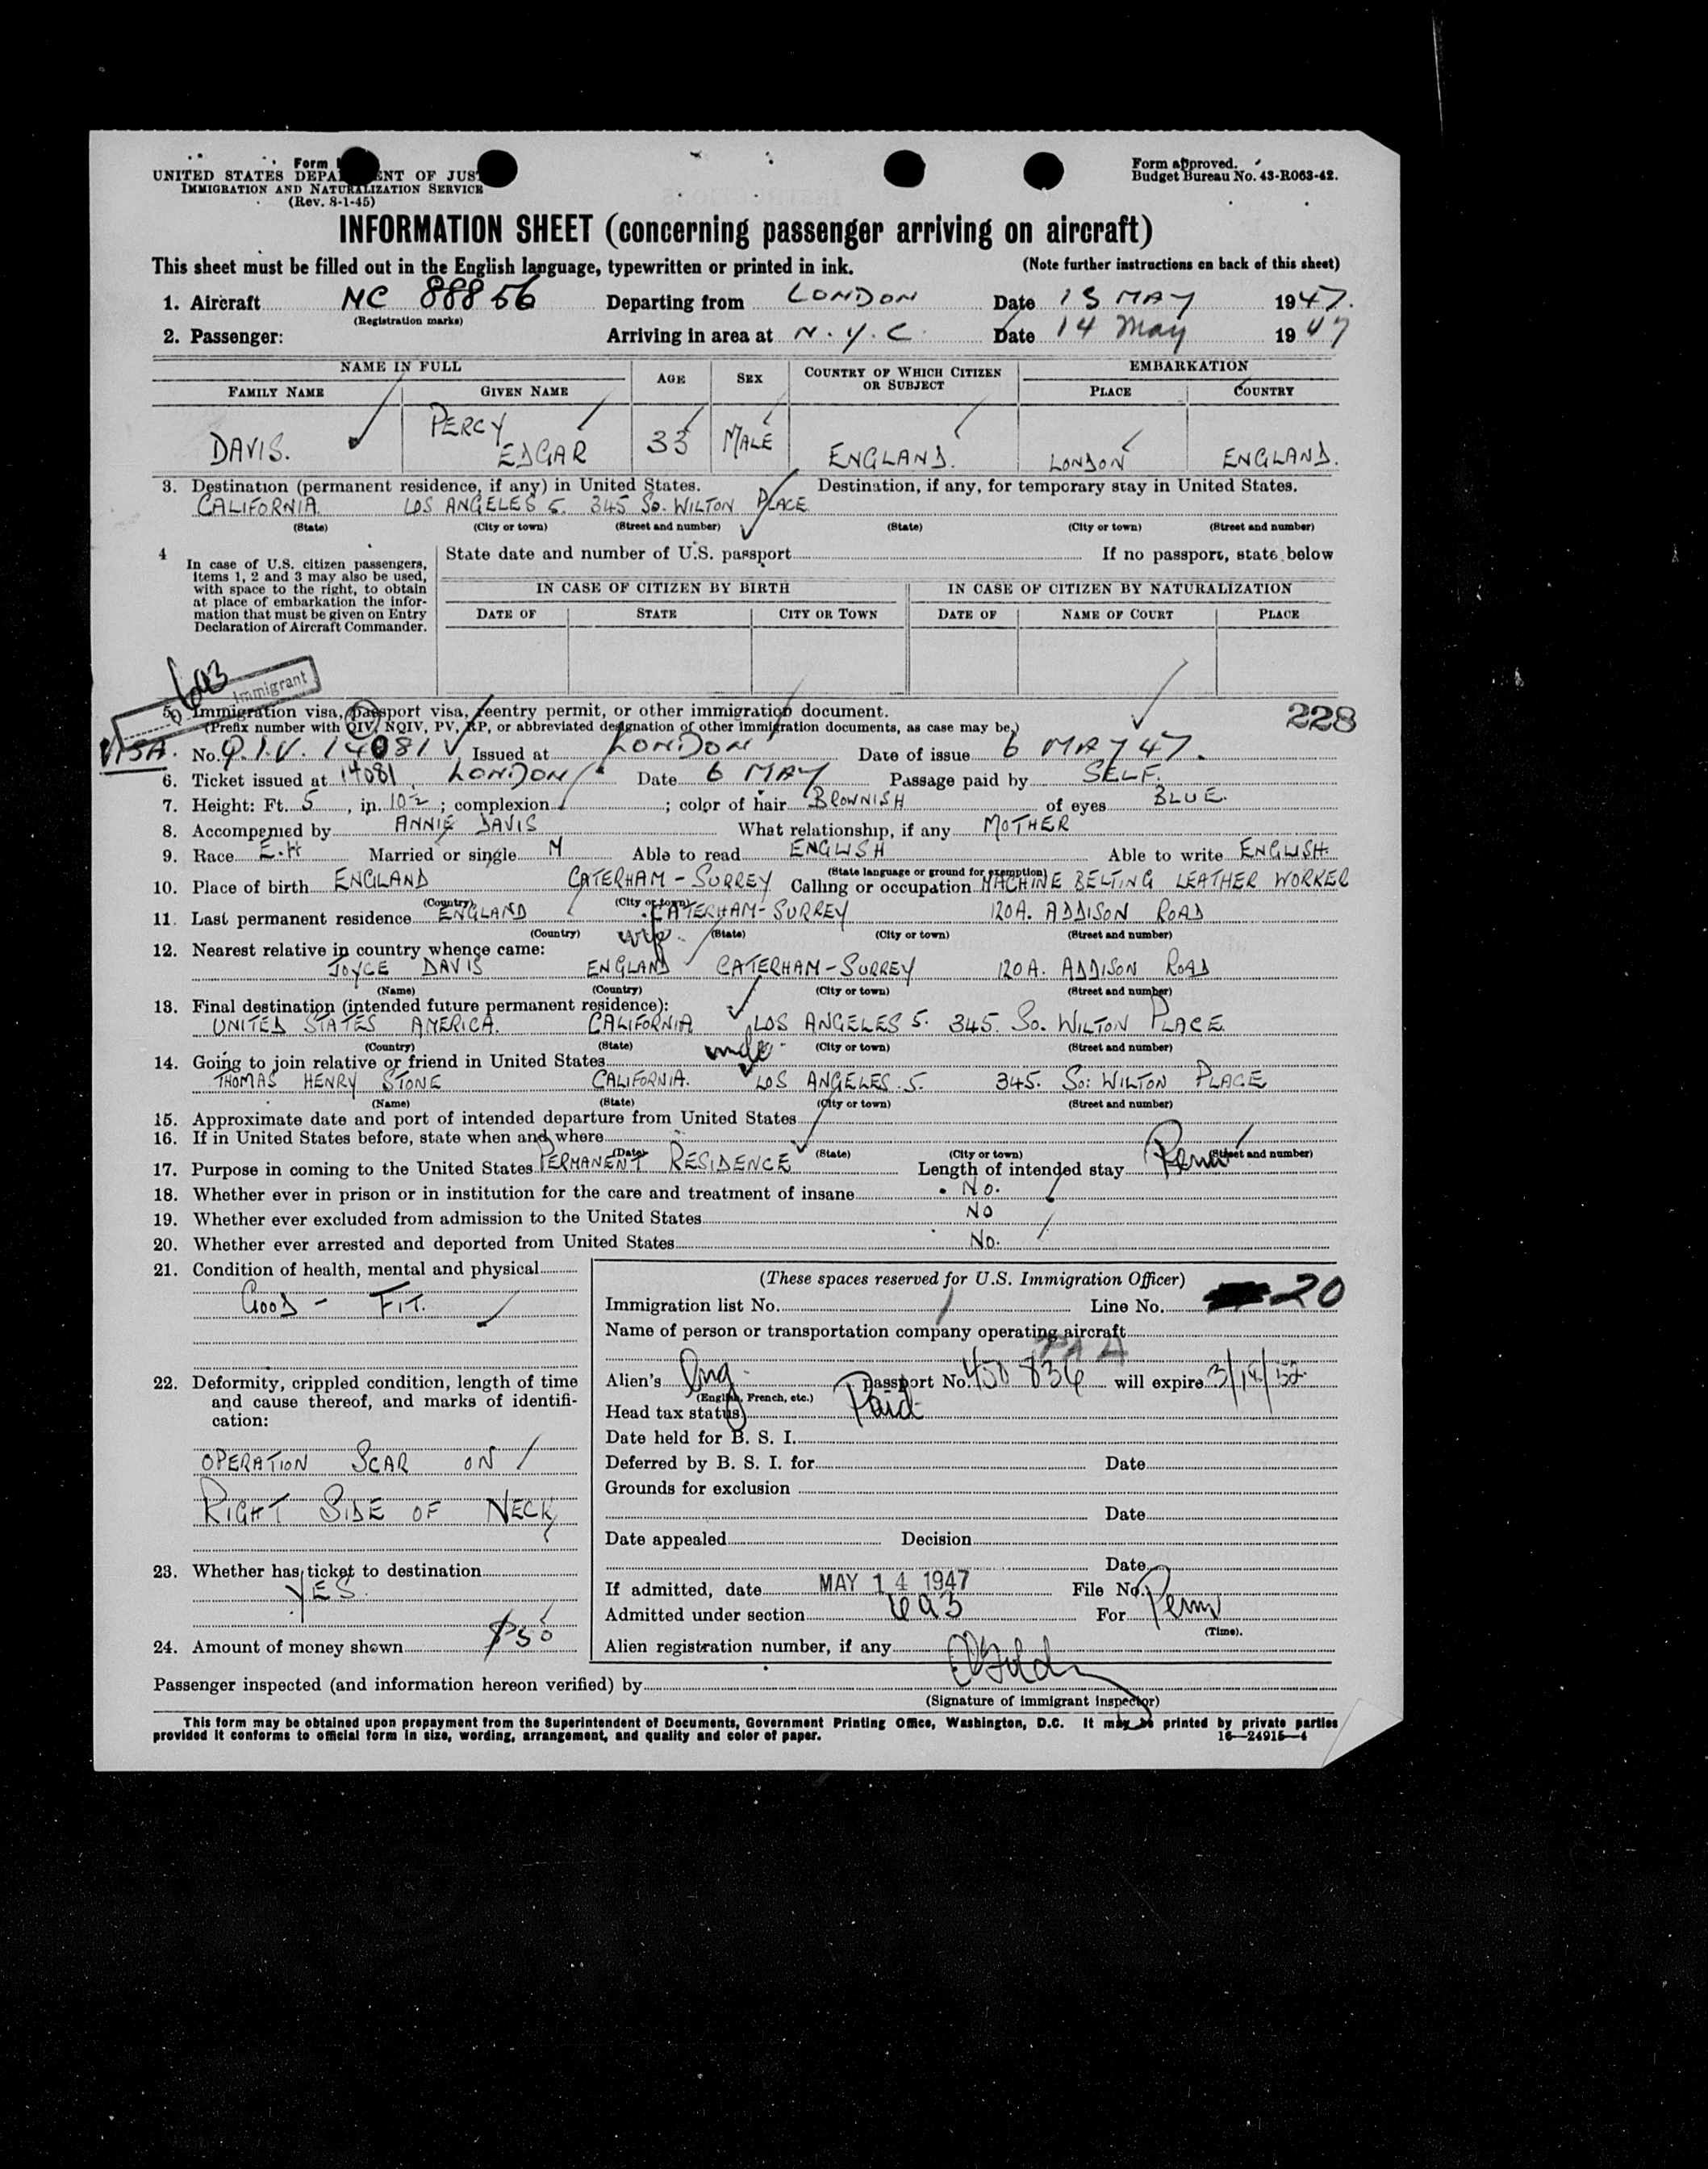 Form
UNITED STATES DEPA ENT OF JUS
IMMIGRATION AND NATURALIZATION SERVICE
(Rev. 8-1-45)
Form approved.
Budget Bureau No. 43-R063-42.
INFORMATION SHEET (concerning passenger arriving on aircraft)
This sheet must be filled out in the English language, typewritten or printed in ink. (Note further instructions on back of this sheet)
1. Aircraft NC 88856 Departing from LONDON Date 13 MAY 1947.
(Registration marks)
2. Passenger: Arriving in area at N.Y.C. Date 14 May 1947
NAME IN FULL AGE SEX COUNTRY OF WHICH CITIZEN OR SUBJECT EMBARKATION
FAMILY NAME GIVEN NAME PLACE COUNTRY
DAVIS. PERCY EDGAR 33 MALE ENGLAND. LONDON ENGLAND.
3. Destination (permanent residence, if any) in United States. Destination, if any, for temporary stay in United States.
CALIFORNIA LOS ANGELES 5. 345 SO. WILTON PLACE
(State) (City or town) (Street and number) (State) (City or town) (Street and number)
4 In case of U.S. citizen passengers, items 1, 2 and 3 may also be used, with space to the right, to obtain at place of embarkation the information that must be given on Entry Declaration of Aircraft Commander.
State date and number of U.S. passport If no passport, state below
IN CASE OF CITIZEN BY BIRTH IN CASE OF CITIZEN BY NATURALIZATION
DATE OF STATE CITY OR TOWN DATE OF NAME OF COURT PLACE
6a3
Immigrant
5. Immigration visa, passport visa, reentry permit, or other immigration document. 228
(Prefix number with QIV, NQIV, PV, RP, or abbreviated designation of other immigration documents, as case may be.)
VISA. No. Q.I.V. 14081 Issued at LONDON Date of issue 6 MAY 47.
6. Ticket issued at 14081 LONDON Date 6 MAY Passage paid by SELF.
7. Height: Ft. 5, in. 10½; complexion ; color of hair BROWNISH of eyes BLUE.
8. Accompanied by ANNIE DAVIS What relationship, if any MOTHER
9. Race E.H Married or single M Able to read ENGLISH Able to write ENGLISH.
(State language or ground for exemption)
10. Place of birth ENGLAND CATERHAM - SURREY Calling or occupation MACHINE BELTING LEATHER WORKER
(Country) (City or town)
11. Last permanent residence ENGLAND CATERHAM-SURREY 120A. ADDISON ROAD
(Country) (State) (City or town) (Street and number)
wife
12. Nearest relative in country whence came:
JOYCE DAVIS ENGLAND CATERHAM-SURREY 120A. ADDISON ROAD
(Name) (Country) (City or town) (Street and number)
13. Final destination (intended future permanent residence):
UNITED STATES AMERICA. CALIFORNIA LOS ANGELES 5. 345. SO. WILTON PLACE
(Country) (State) (City or town) (Street and number)
14. Going to join relative or friend in United States uncle
THOMAS HENRY STONE CALIFORNIA. LOS ANGELES. 5. 345. SO: WILTON PLACE
(Name) (State) (City or town) (Street and number)
15. Approximate date and port of intended departure from United States
16. If in United States before, state when and where
(Date) (State) (City or town) (Street and number)
17. Purpose in coming to the United States PERMANENT RESIDENCE Length of intended stay Perm
18. Whether ever in prison or in institution for the care and treatment of insane No.
19. Whether ever excluded from admission to the United States NO
20. Whether ever arrested and deported from United States NO.
21. Condition of health, mental and physical
GOOD - FIT.
22. Deformity, crippled condition, length of time and cause thereof, and marks of identification:
OPERATION SCAR ON
RIGHT SIDE OF NECK
23. Whether has ticket to destination
YES.
24. Amount of money shown $50
(These spaces reserved for U.S. Immigration Officer)
Immigration list No. Line No. 20
Name of person or transportation company operating aircraft
PAA
Alien's Eng passport No. 450836 will expire 3/18/52
(English, French, etc.)
Head tax status Paid
Date held for B. S. I.
Deferred by B. S. I. for Date
Grounds for exclusion
Date
Date appealed Decision
Date
If admitted, date MAY 14 1947 File No.
Admitted under section 6a3 For Perm
(Time).
Alien registration number, if any
Passenger inspected (and information hereon verified) by
(Signature of immigrant inspector)
This form may be obtained upon prepayment from the Superintendent of Documents, Government Printing Office, Washington, D.C. It may be printed by private parties
provided it conforms to official form in size, wording, arrangement, and quality and color of paper. 16—24915-4